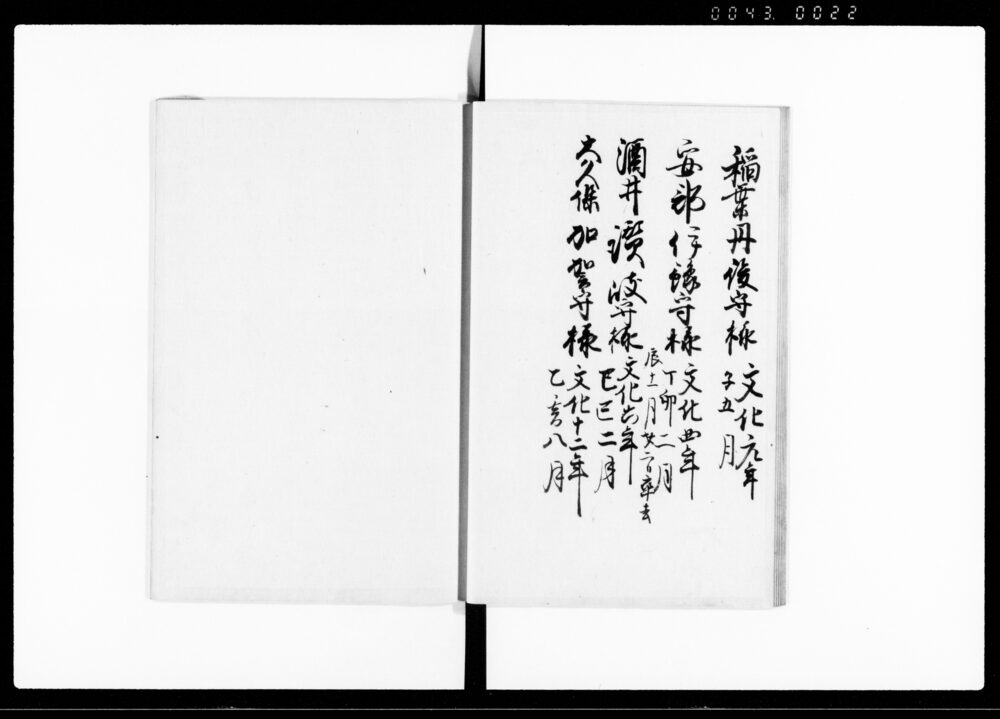 0043. 0022
稲葉丹後守様 文化元年
子五月
安部伊豫守様 文化四年
丁卯二月
辰十一月廿二日卒去
酒井讃岐守様 文化六年
己巳二月
大久保加賀守様 文化十二年
乙亥八月